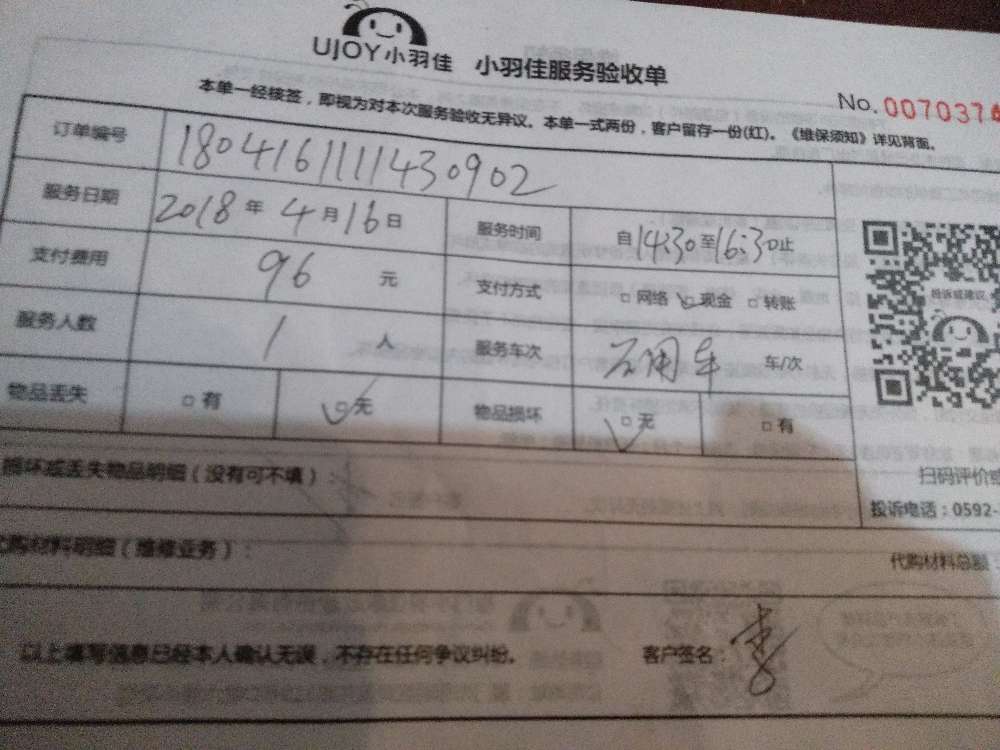 UJOY小羽佳 小羽佳服务验收单
No. 0070376
本单一经核签，即视为对本次服务验收无异议。本单一式两份，客户留存一份(红)。《维保须知》详见背面。
订单编号 1804161111430902
服务日期 2018年4月16日 服务时间 自14:30至16:30止
支付费用 96 元 支付方式 □网络 □现金 □转账
服务人数 1 人 服务车次 车/次
物品丢失 □有 □无 物品损坏 □无 □有
投诉或建议
扫码评价或
损坏或丢失物品明细（没有可不填）：
投诉电话：0592-
代购材料明细（维修业务）：
代购材料总额：
以上填写信息已经本人确认无误，不存在任何争议纠纷。 客户签名：李